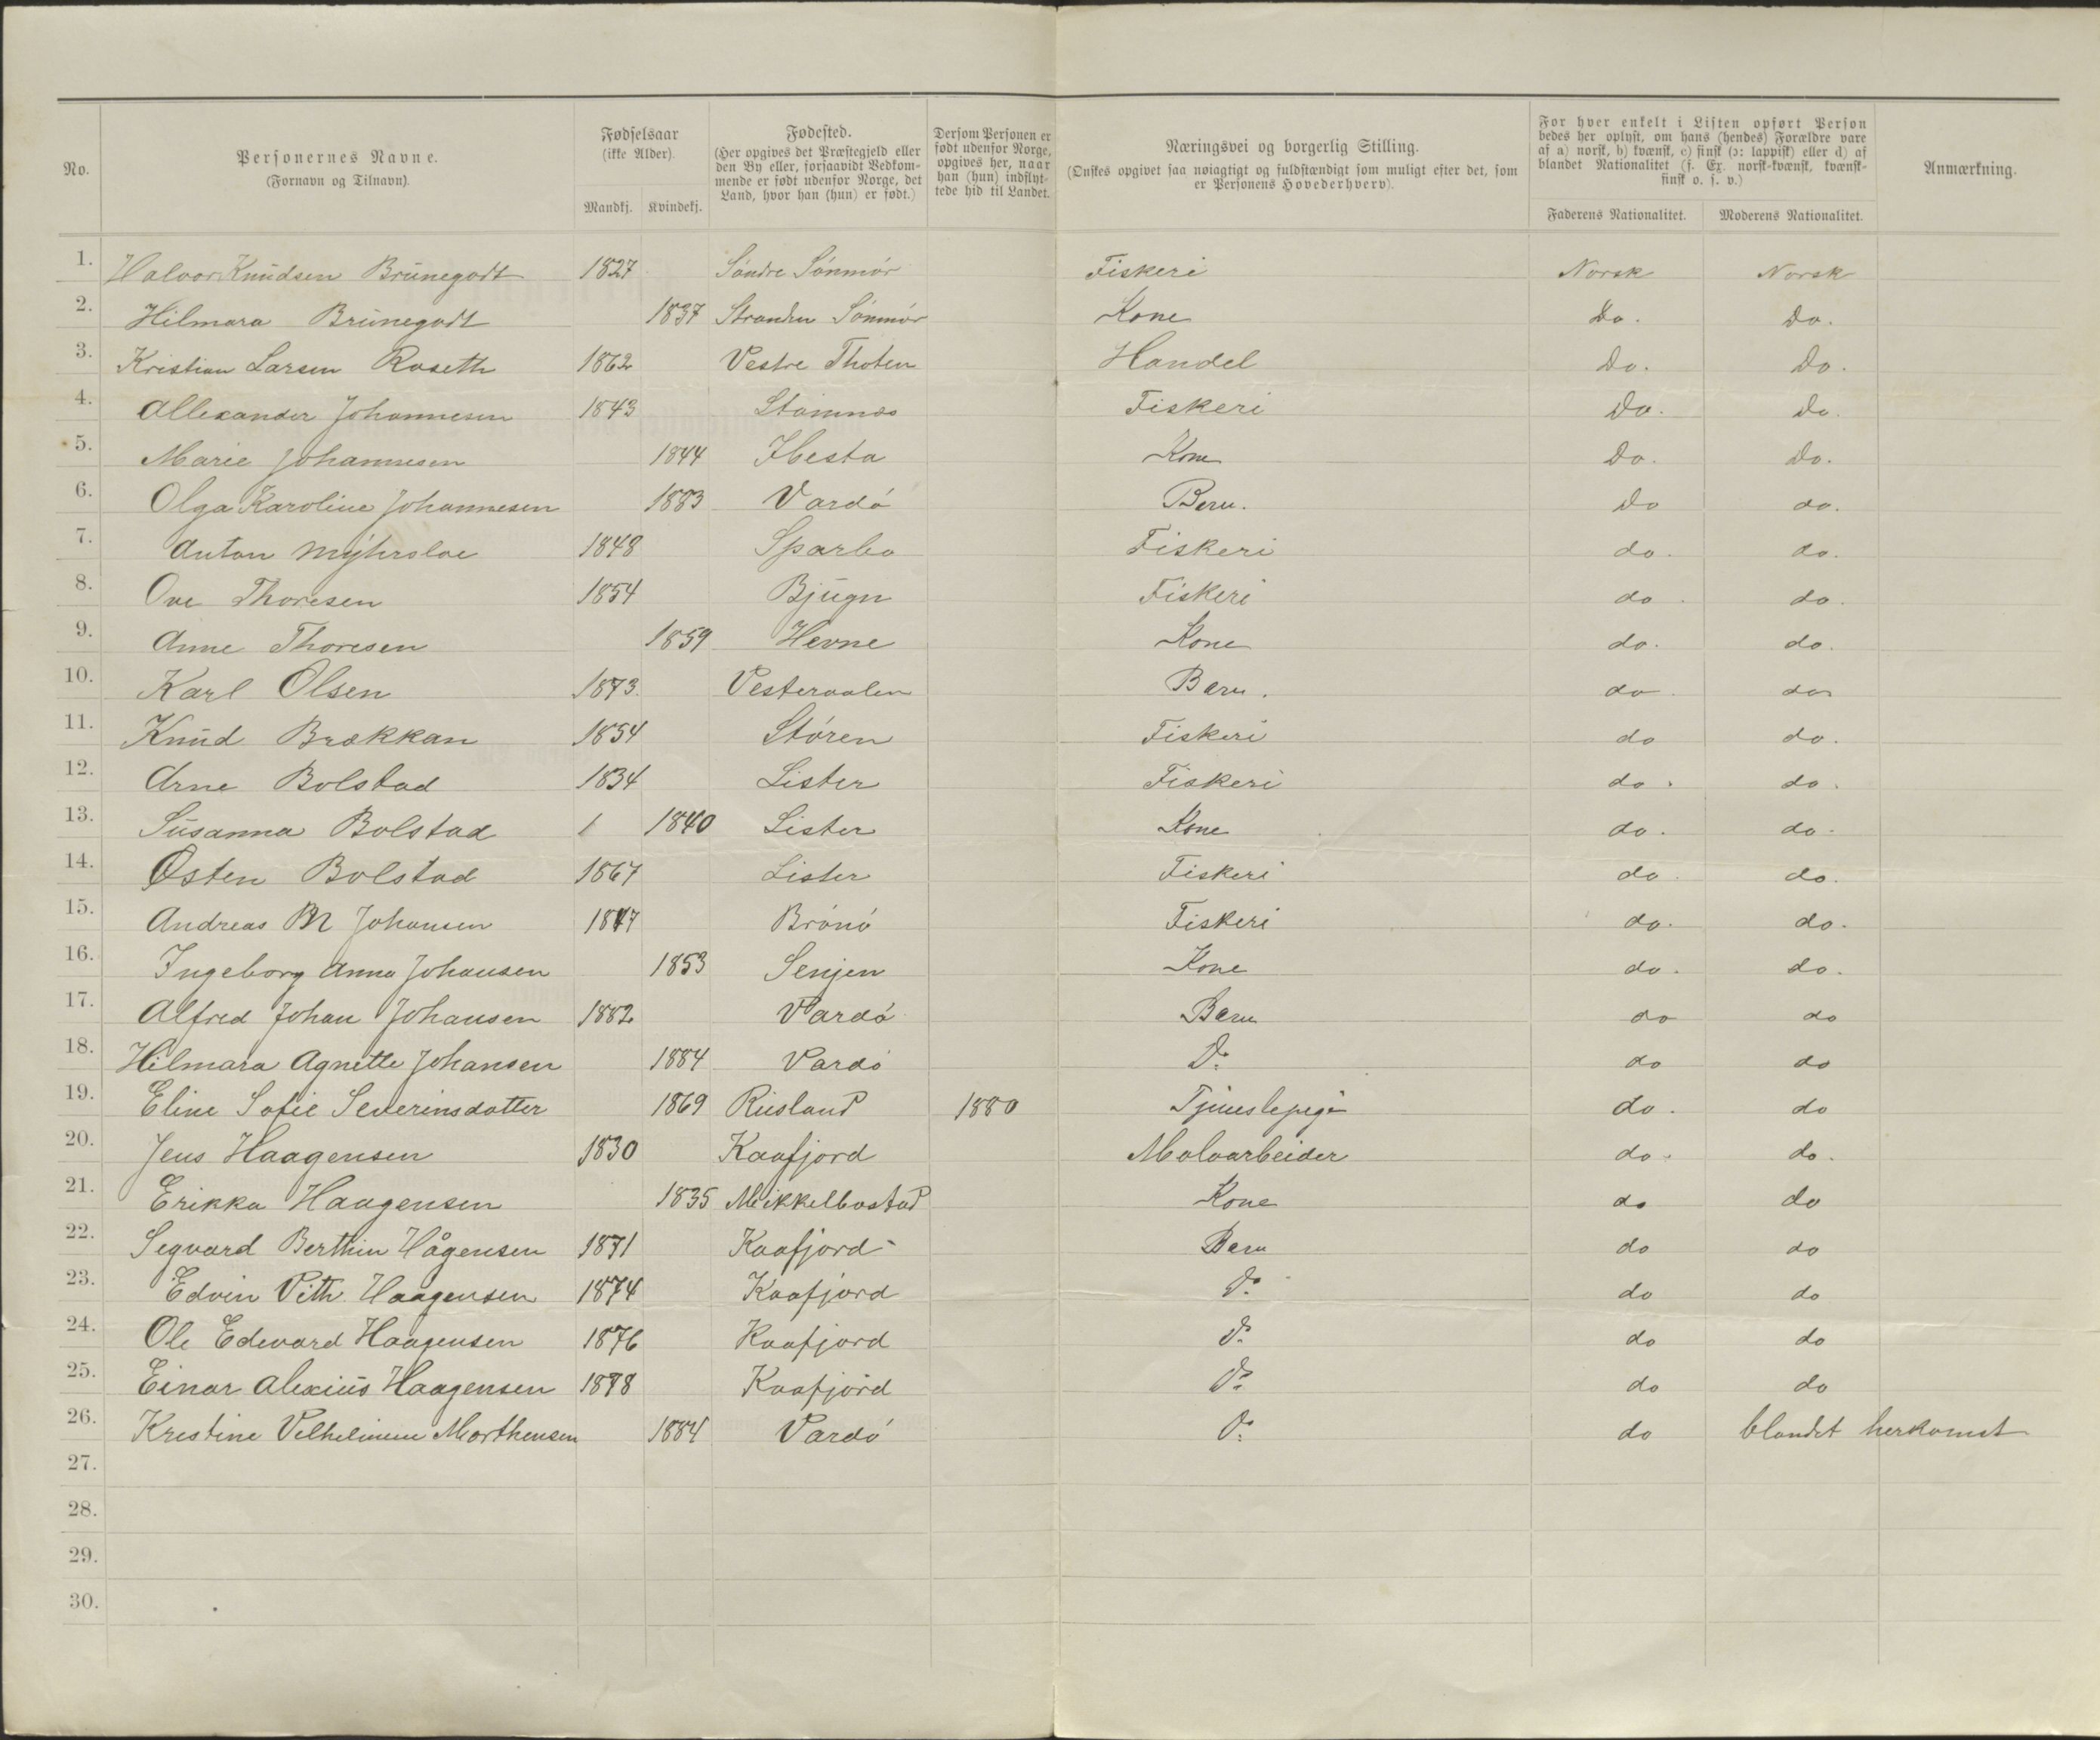 No.
Personernes Navne.
(Fornavn og Tilnavn).
Fødselsaar
(ikke Alder).
Mandkj. Kvindekj.
Fødested.
(Her opgives det Præstegjeld eller
den By eller, forsaavidt Vedkom-
mende er født udenfor Norge, det
Land, hvor han (hun) er født.)
Dersom Personen er
født udenfor Norge,
opgives her, naar
han (hun) indflyt-
tede hid til Landet.
Næringsvei og borgerlig Stilling.
(Ønskes opgivet saa nøiagtigt og fuldstændigt som muligt efter det, som
er Personens Hovederhverv).
For hver enkelt i Listen opført Person
bedes her oplyst, om hans (hendes) Forældre vare
af a) norsk, b) kvænsk, c) finsk (ɔ: lappisk) eller d) af
blandet Nationalitet (f. Ex. norsk-kvænsk, kvænsk-
finsk o. s. v.)
Faderens Nationalitet. Moderens Nationalitet.
Anmærkning.
1. Halvor Knudsen Brunegodt 1827 Söndre Sönmör Fiskeri Norsk Norsk
2. Hilmara Brunegodt 1837 Stranden Sönmör Kone Do. Do.
3. Kristian Larsen Roseth 1862 Vestre Thoten Handel Do. Do.
4. Allexander Johannesen 1843 Stamnæs Fiskeri Do. Do.
5. Marie Johannesen 1844 Ibesta Kone Do. Do.
6. Olga Karoline Johannesen 1883 Vardö Barn. Do do.
7. Anton 1848 Sparbo Fiskeri do. do.
8. Ove Thoresen 1854 Bjugn Fiskeri do. do.
9. Anne Thoresen 1859 Hevne Kone do. do.
10. Karl Olsen 1873. Vesteraalen Barn. do. do
11. Knud Brækkan 1854 Stören Fiskeri do do.
12. Arne Bolstad 1834 Lister Fiskeri do. do.
13. Susanna Bolstad 1 1840 Lister Kone do. do.
14. Østen Bolstad 1867 Lister Fiskeri do. do.
15. Andreas M Johansen 1847 Brönö Fiskeri do. do.
16. Ingeborg Anna Johansen 1853 Senjen Kone do. do.
17. Alfred Johan Johansen 1882 Vardö Barn do do
18. Hilmara Agnette Johansen 1884 Vardö Do do do
19. Eline Sofie Severinsdatter 1869 Rusland 1880 Tjenestepige do. do
20. Jens Haagensen 1830 Kaafjord Moloarbeider do. do.
21. Erikka Haagensen 1835 Mikkelbostad Kone do do
22. Segvard Berthin Hågensen 1871 Kaafjord Barn do do
23. Edvin Vith. Haagensen 1874 Kaafjord Do do do
24. Ole Edevard Haagensen 1876 Kaafjord Do do do
25. Einar Alexius Haagensen 1878 Kaafjord Do do do
26. Krestine Velhelmine Morthensen 1884 Vardö Do do blandet herkomst
27.
28.
29.
30.